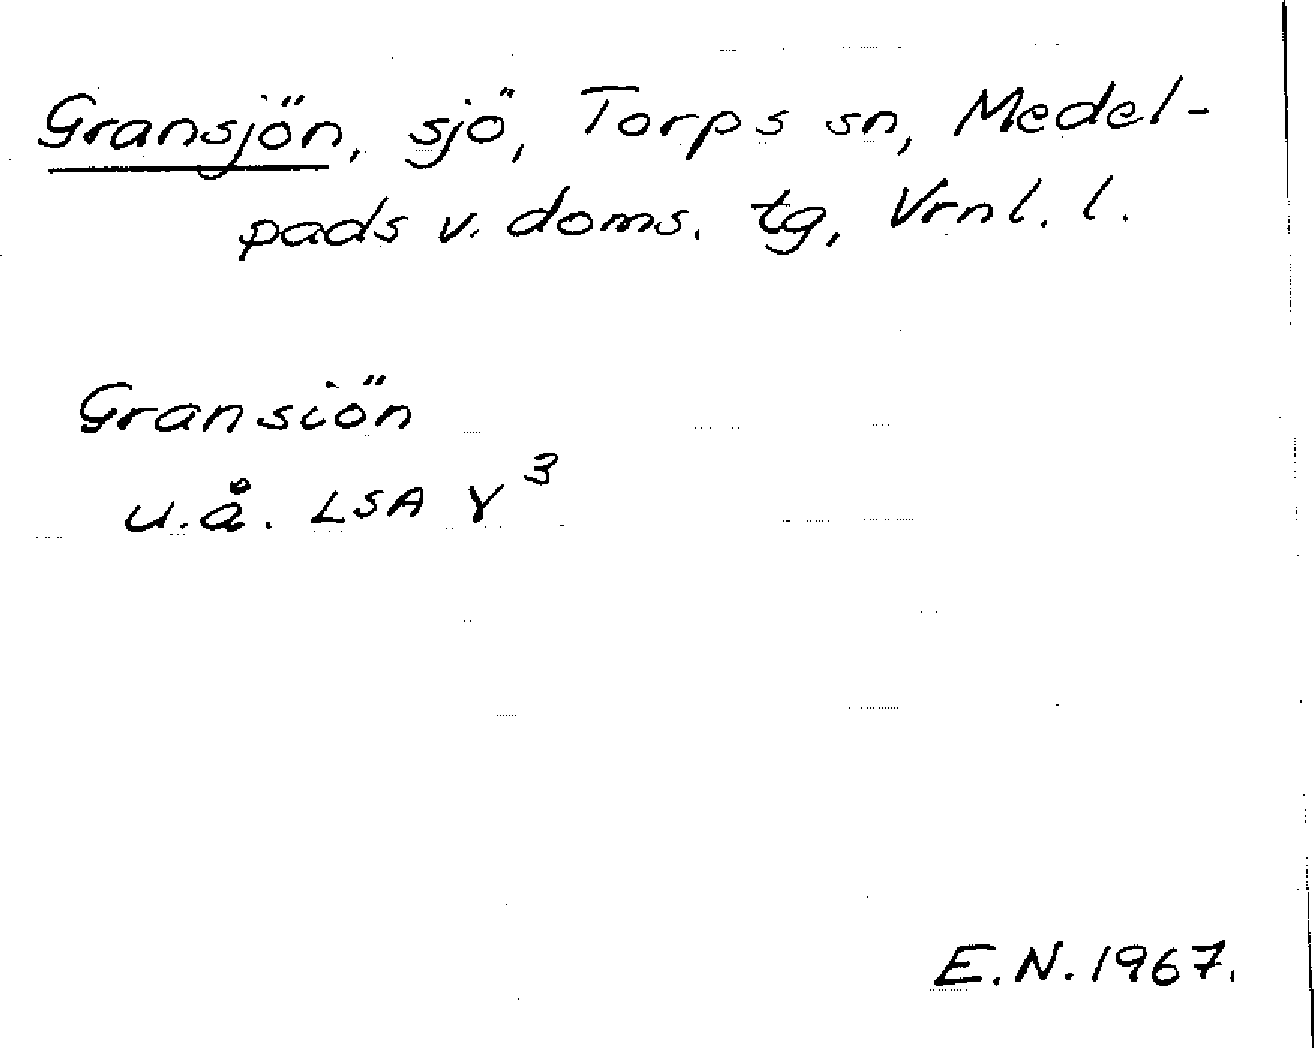 Gransjön, sjö, Torps sn, Medel-
pads v. doms. tg, Vrnl. l.
Gransiön
u.å. LSA Y³
E.N. 1967.